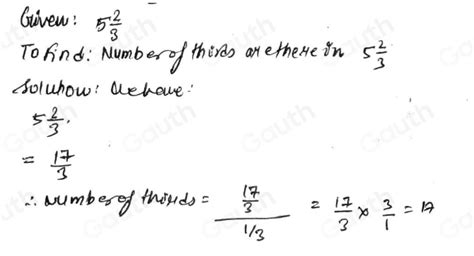 Given: 5 2/3
To find: Number of thirds are there in 5 2/3
Solution: We have:
5 2/3.
= 17/3
∴ number of thirds = (17/3)/(1/3) = 17/3 × 3/1 = 17